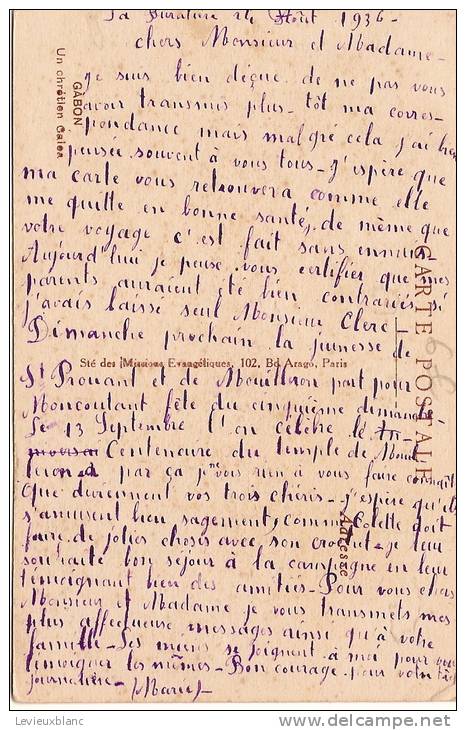 La Suratière 24 Août 1936-
chers Monsieur et Madame-
je suis bien déçue de ne pas vous
avoir transmis plus-tôt ma corres-
pondance mais malgré cela j'ai bien
pensée souvent à vous tous- j'espère que
ma carte vous retrouvera comme elle
me quitte en bonne santé, de même que
votre voyage c'est fait sans ennuis
Aujourd'hui je peuse vous certifier que mes
parents auraient été bien contrariés si
j'avais laissé seul Monsieur Clerc
Dimanche prochain la jeunesse de
St Prouant et de Mouilleron part pour
Moncoutant fête du cinquième dimanche-
Le 13 Septembre l'on célèbre le
Centenaire du temple de Mouil
leron à par ça je ne vois rien à vous faire connaître
Que deviennent vos trois chéris- j'espère qu'ils
s'amusent bien sagement, comme Colette doit
faire de jolies choses avec son crochet- je leur
souhaite bon séjour à la campagne en leur
témoignant bien des amitiés- Pour vous chers
Monsieur et Madame je vous transmets mes
plus affectueux messages ainsi qu'à votre
famille- Les miens se joignent à moi pour vous
envoyer les mêmes- Bon courage pour votre tâche
journalière- Marie
GABON
Un chrétien Galoa
CARTE POSTALE
Sté des Missions Evangéliques, 102, Bd Arago, Paris
Adresse
Levieuxblanc
delcampe.net